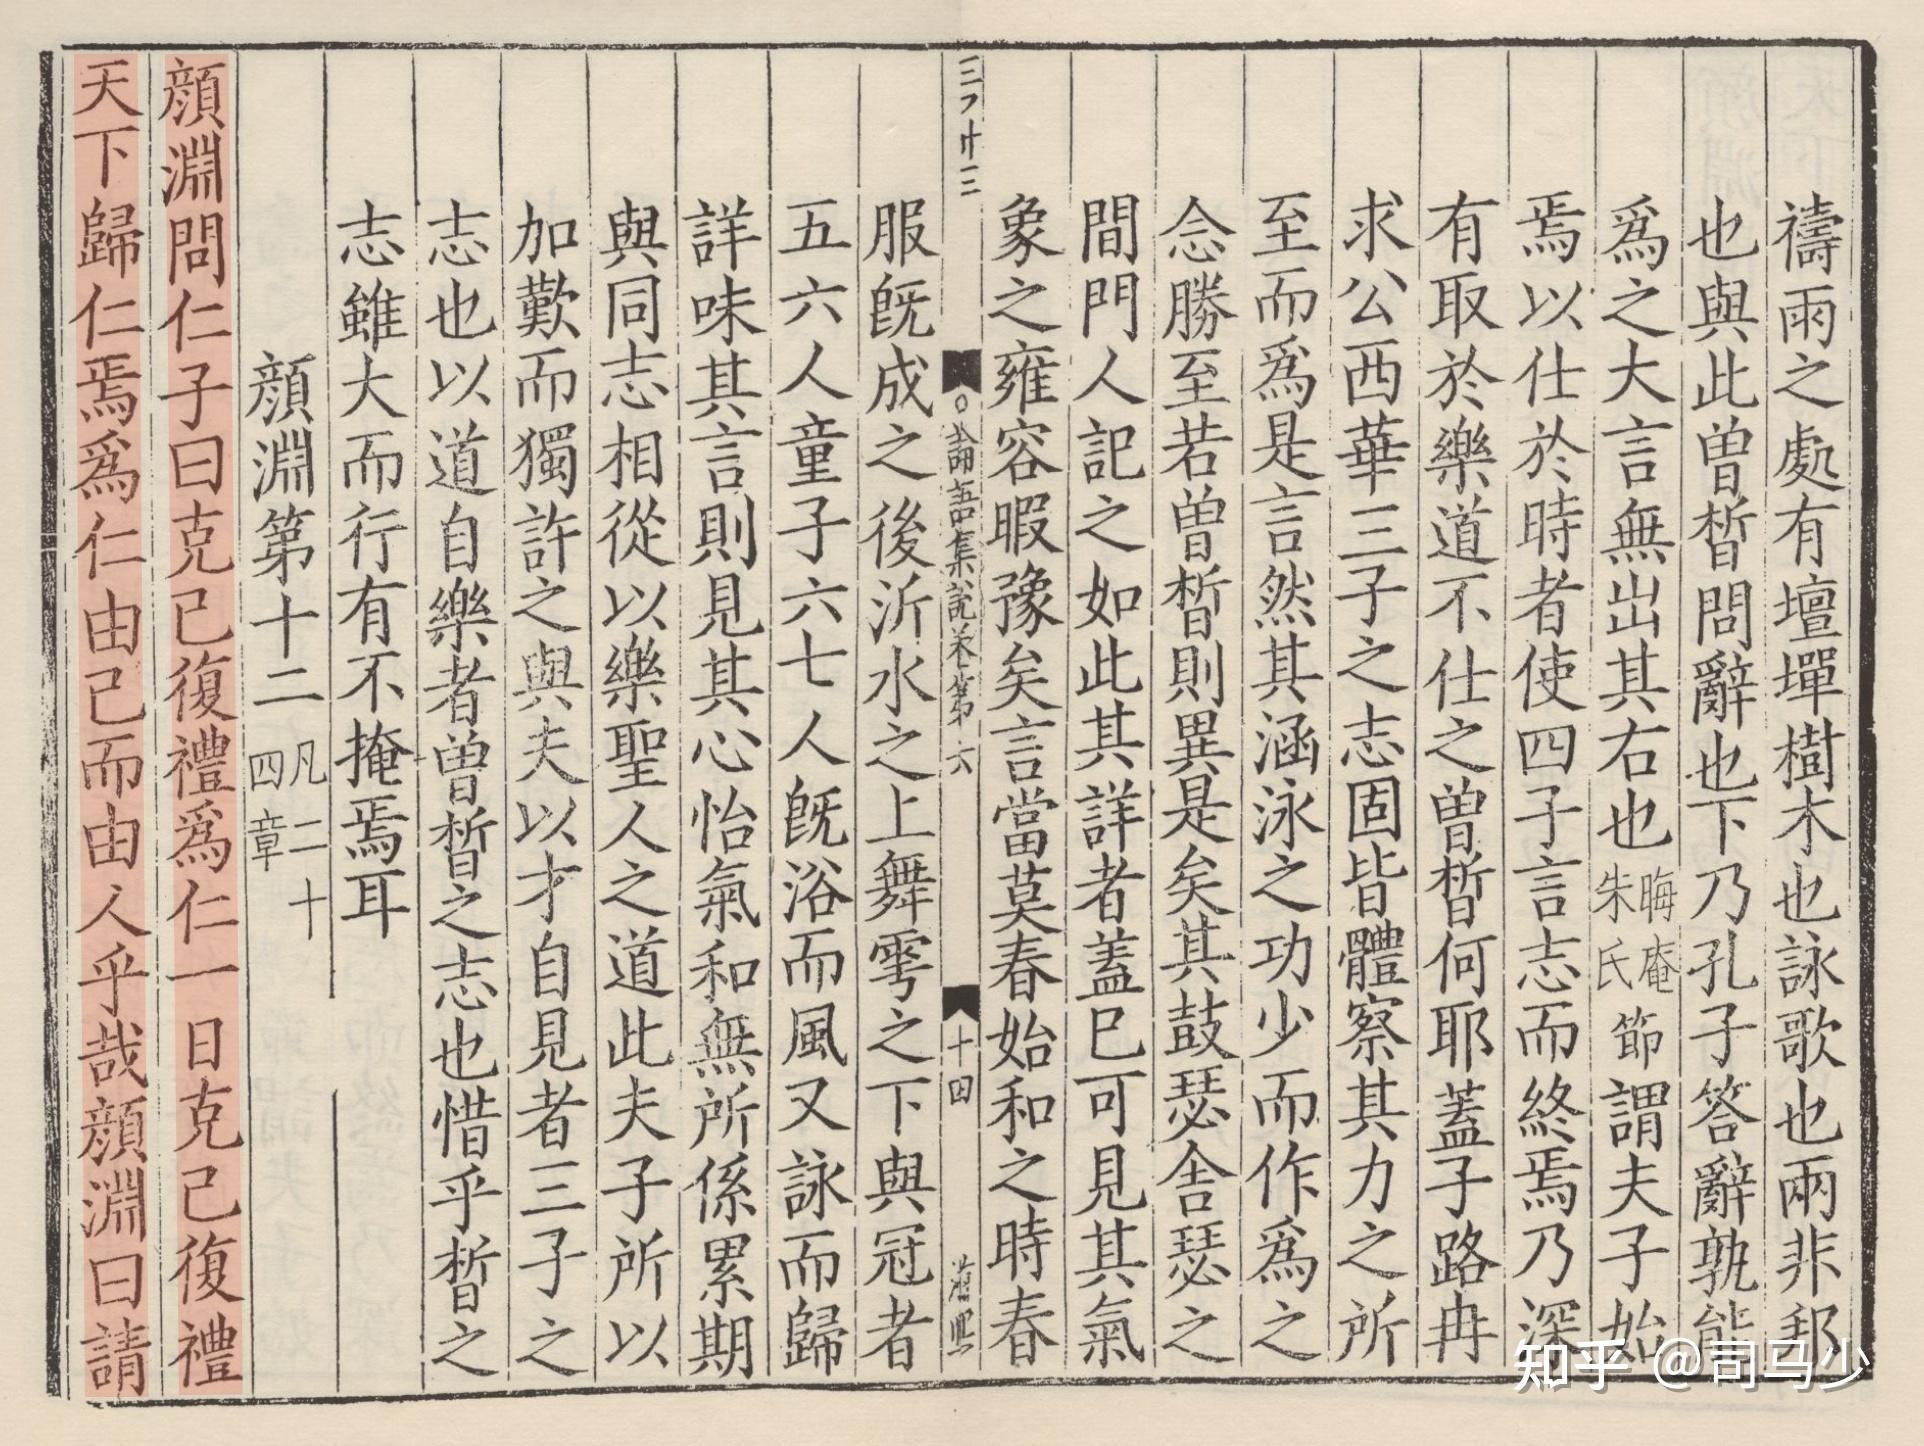 禱雨之處有壇墠樹木也詠歌也兩非邦
也與此曽晳問辭也下乃孔子答辭孰能
爲之大言無出其右也晦庵朱氏節謂夫子始
焉以仕於時者使四子言志而終焉乃深
有取於樂道不仕之曽晳何耶蓋子路冉
求公西華三子之志固皆體察其力之所
至而爲是言然其涵泳之功少而作爲之
念勝至若曽晳則異是矣其鼓瑟舍瑟之
間門人記之如此其詳者蓋巳可見其氣
象之雍容暇豫矣言當莫春始和之時春
論語集說卷第六 十四
服旣成之後沂水之上舞雩之下與冠者
五六人童子六七人旣浴而風又詠而歸
詳味其言則見其心怡氣和無所係累期
與同志相從以樂聖人之道此夫子所以
加歎而獨許之與夫以才自見者三子之
志也以道自樂者曽晳之志也惜乎晳之
志雖大而行有不掩焉耳
顔淵第十二凡二十四章
顔淵問仁子曰克己復禮爲仁一日克己復禮
天下歸仁焉爲仁由己而由人乎哉顔淵曰請
知乎 @司马少